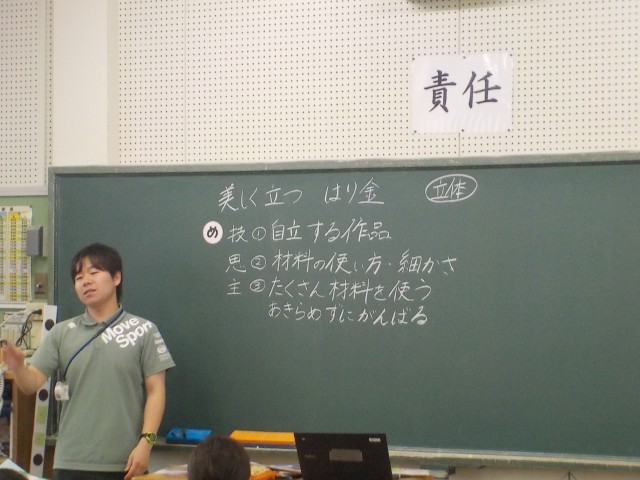 責任
美しく立つ はり金 立体
め 技 ① 自立する作品
思 ② 材料の使い方・細かさ
主 ③ たくさん材料を使う
あきらめずにがんばる
Move
Sport